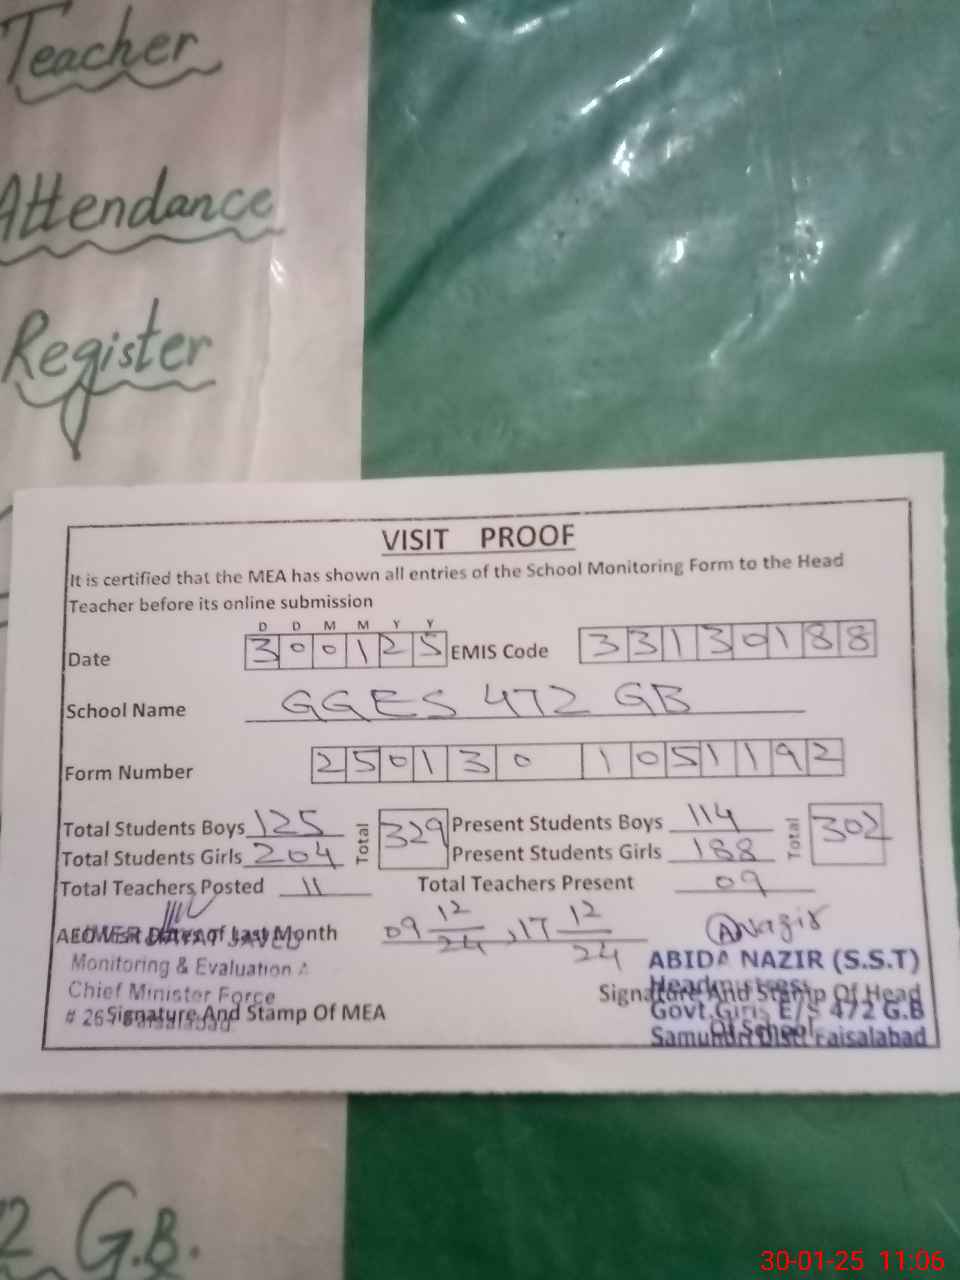 Teacher
Attendance
Register
VISIT PROOF
It is certified that the MEA has shown all entries of the School Monitoring Form to the Head
Teacher before its online submission
D D M M Y Y
Date 3 0 0 1 2 5 EMIS Code 3 3 1 3 0 1 8 8
School Name GGES 472 GB
Form Number 2 5 0 1 3 0 1 0 5 1 1 9 2
Total Students Boys 125 Total 329 Present Students Boys 114 Total 302
Total Students Girls 204 Present Students Girls 188
Total Teachers Posted 11 Total Teachers Present 09
AEO Visit Dates of Last Month 09 12/24, 17 12/24 Nazir
JAVED
Monitoring & Evaluation A
Chief Minister Force
# 26 Faisalabad
Signature And Stamp Of MEA
ABIDA NAZIR (S.S.T)
Headmistress
Signature And Stamp Of Head
Govt. Girls E/S 472 G.B
Of School
Samundri Distt Faisalabad
2 G.B.
30-01-25 11:06